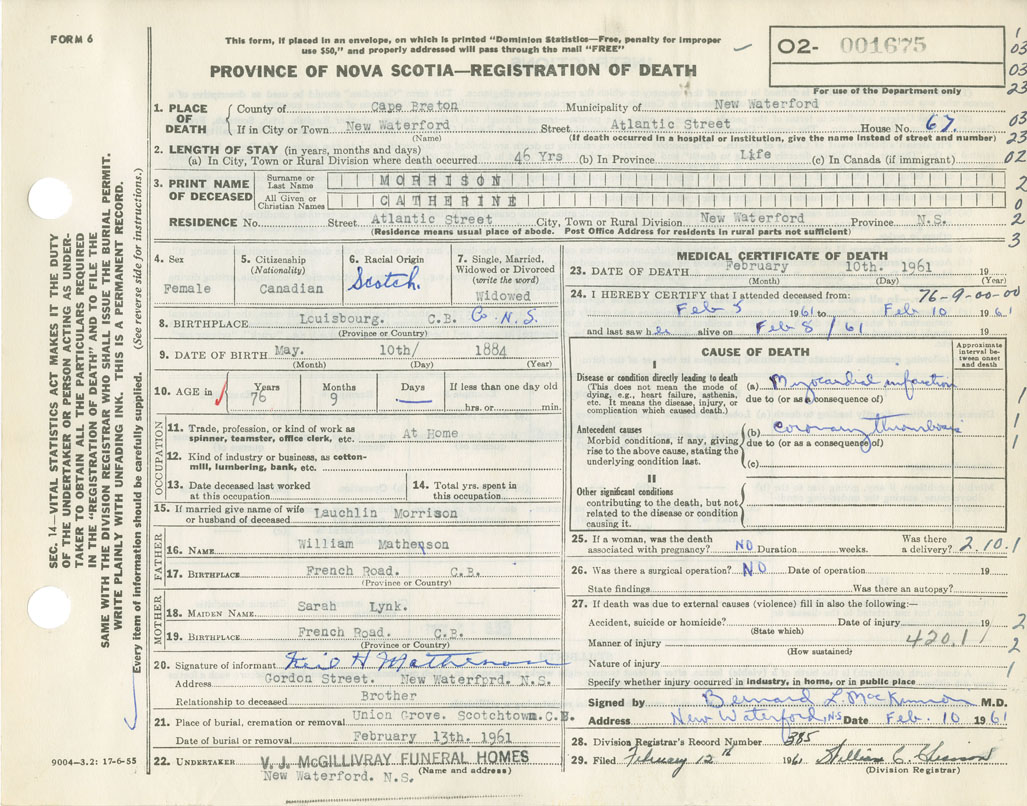 FORM 6
This form, if placed in an envelope, on which is printed "Dominion Statistics—Free, penalty for improper
use $50," and properly addressed will pass through the mail "FREE"
O2- 001675
PROVINCE OF NOVA SCOTIA—REGISTRATION OF DEATH
For use of the Department only
1. PLACE OF DEATH
County of Cape Breton Municipality of New Waterford
If in City or Town New Waterford Street Atlantic Street House No. 67.
(Name) (If death occurred in a hospital or institution, give the name instead of street and number)
2. LENGTH OF STAY (in years, months and days)
(a) In City, Town or Rural Division where death occurred 46 Yrs (b) In Province Life (c) In Canada (if immigrant)
3. PRINT NAME OF DECEASED
Surname or Last Name MORRISON
All Given or Christian Names CATHERINE
RESIDENCE No. Street Atlantic Street City, Town or Rural Division New Waterford Province N.S.
(Residence means usual place of abode. Post Office Address for residents in rural parts not sufficient)
4. Sex
Female
5. Citizenship
(Nationality)
Canadian
6. Racial Origin
Scotch.
7. Single, Married,
Widowed or Divorced
(write the word)
Widowed
8. BIRTHPLACE Louisbourg. C.B. Co N.S.
(Province or Country)
9. DATE OF BIRTH May. 10th/ 1884
(Month) (Day) (Year)
10. AGE in
Years Months Days If less than one day old
76 9 — hrs. or min.
OCCUPATION
11. Trade, profession, or kind of work as
spinner, teamster, office clerk, etc. At Home
12. Kind of industry or business, as cotton-
mill, lumbering, bank, etc.
13. Date deceased last worked
at this occupation
14. Total yrs. spent in
this occupation
15. If married give name of wife
or husband of deceased Lauchlin Morrison
FATHER
16. NAME William Matheson
17. BIRTHPLACE French Road. C.B.
(Province or Country)
MOTHER
18. MAIDEN NAME Sarah Lynk.
19. BIRTHPLACE French Road. C.B.
(Province or Country)
20. Signature of informant Neil H Matheson
Address Gordon Street. New Waterford. N.S.
Relationship to deceased Brother
21. Place of burial, cremation or removal Union Grove. Scotchtown. C.B.
Date of burial or removal February 13th. 1961
22. UNDERTAKER V. J. McGILLIVRAY FUNERAL HOMES
New Waterford. N.S. (Name and address)
9004—3.2: 17-6-55
MEDICAL CERTIFICATE OF DEATH
23. DATE OF DEATH February 10th. 1961 19
(Month) (Day) (Year)
24. I HEREBY CERTIFY that I attended deceased from: 76-9-00-00
Feb 5 1961 to Feb 10 1961
and last saw her alive on Feb 8/61 19
CAUSE OF DEATH
Approximate
interval be-
tween onset
and death
I
Disease or condition directly leading to death
(This does not mean the mode of
dying, e.g., heart failure, asthenia,
etc. It means the disease, injury, or
complication which caused death.)
(a) Myocardial infarction
due to (or as a consequence of)
Antecedent causes
Morbid conditions, if any, giving
rise to the above cause, stating the
underlying condition last.
(b) Coronary thrombosis
due to (or as a consequence of)
(c)
II
Other significant conditions
contributing to the death, but not
related to the disease or condition
causing it.
25. If a woman, was the death
associated with pregnancy? NO Duration weeks. Was there
a delivery? 2.10.1
26. Was there a surgical operation? NO Date of operation 19
State findings Was there an autopsy?
27. If death was due to external causes (violence) fill in also the following:—
Accident, suicide or homicide? Date of injury 19
(State which)
Manner of injury 420.1
(How sustained)
Nature of injury
Specify whether injury occurred in industry, in home, or in public place
Signed by Bernard L. MacKinnon M.D.
Address New Waterford, NS Date Feb. 10 1961
28. Division Registrar's Record Number 385
29. Filed February 12th 1961
(Division Registrar)
1
03
03
23
03
23
02
2
0
2
3
1
1
1
1
2
2
1
SEC. 14—VITAL STATISTICS ACT MAKES IT THE DUTY
OF THE UNDERTAKER OR PERSON ACTING AS UNDER-
TAKER TO OBTAIN ALL THE PARTICULARS REQUIRED
IN THE "REGISTRATION OF DEATH" AND TO FILE THE
SAME WITH THE DIVISION REGISTRAR WHO SHALL ISSUE THE BURIAL PERMIT.
WRITE PLAINLY WITH UNFADING INK. THIS IS A PERMANENT RECORD.
Every item of information should be carefully supplied. (See reverse side for instructions.)